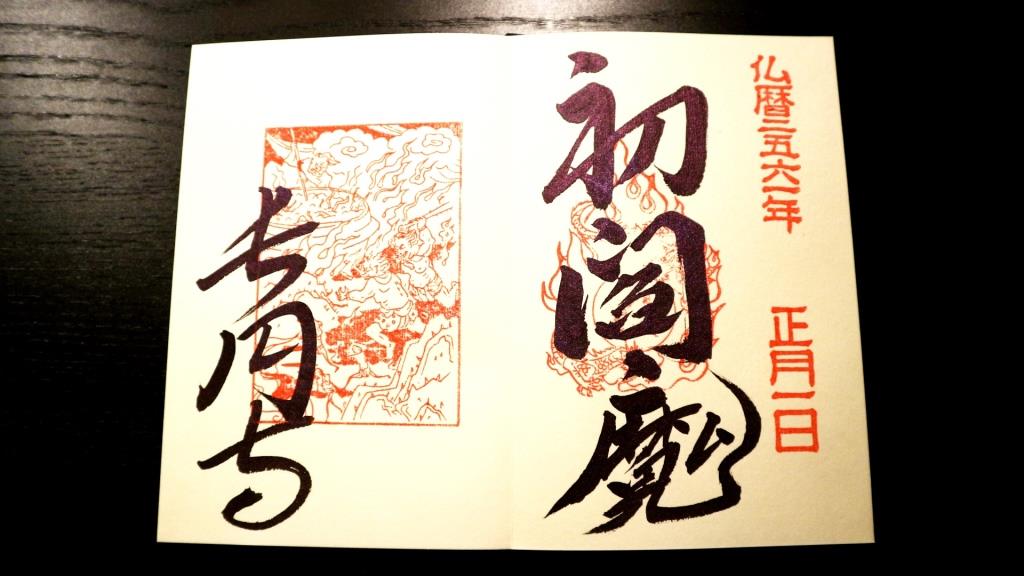 仏暦二五六一年
正月一日
初閻魔
長円寺